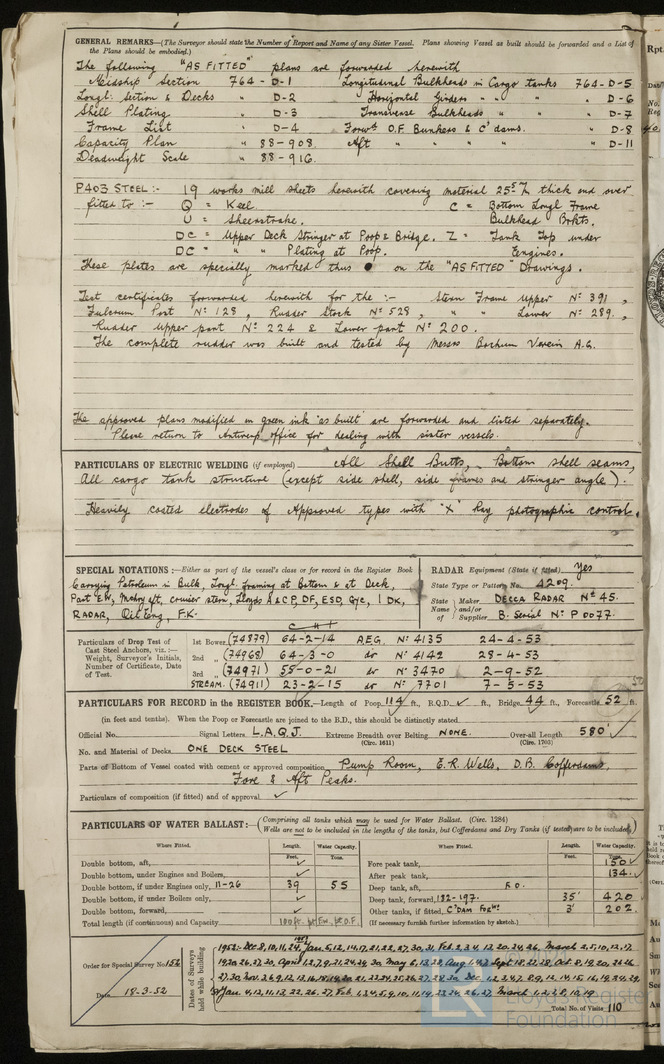 GENERAL REMARKS—(The Surveyor should state the Number of Report and Name of any Sister Vessel. Plans showing Vessel as built should be forwarded and a List of
the Plans should be embodied.)
The following "AS FITTED" plans are forwarded herewith
Midship Section 764-D-1 Longitudinal Bulkheads in Cargo tanks 764-D-5
Longl. Section & Decks " D-2 Horizontal Girders " " " " D-6
Shell Plating " D-3 Transverse Bulkheads " " " D-7
Frame List " D-4 Forwd O.F. Bunkers & C'dams. " D-8
Capacity Plan " 88-908. Aft " " " " " D-11
Deadweight Scale " 88-916.
P403 STEEL:- 19 works mill sheets herewith covering material thick and over
fitted to :- Q = Keel. C = Bottom Longl Frame
U = Sheerstrake. Bulkhead Brkts.
DC = Upper Deck Stringer at Poop & Bridge. Z = Tank Top under
DC = " " Plating at Poop. Engines.
These plates are specially marked thus ● on the "AS FITTED" Drawings.
Test certificates forwarded herewith for the :- Stern Frame Upper Nº 391,
Fulcrum Post Nº 128, Rudder Stock Nº 528, " " Lower Nº 289,
Rudder upper part Nº 224 & Lower part Nº 200.
The complete rudder was built and tested by Messrs Bochum Verein A.G.
The approved plans modified in green ink "as built" are forwarded and listed separately.
Please return to Antwerp office for dealing with sister vessels.
PARTICULARS OF ELECTRIC WELDING (if employed) All Shell Butts, Bottom shell seams,
All cargo tank structure (except side shell, side frames and stringer angle).
Heavily coated electrodes of Approved types with "X" Ray photographic control.
SPECIAL NOTATIONS:—Either as part of the vessel's class or for record in the Register Book
Carrying Petroleum in Bulk, Longl. framing at Bottom & at Deck,
Part EW, Mchy aft, cruiser stern, Lloyds A & CP, DF, ESD, Gyc, 1 DK,
RADAR, Oil Eng, F.K.
RADAR Equipment (State if fitted) Yes
State Type or Pattern No. 4209.
State Name of Maker and/or Supplier DECCA RADAR Nº 45.
B. Serial Nº P 0077.
Particulars of Drop Test of
Cast Steel Anchors, viz.:—
Weight, Surveyor's Initials,
Number of Certificate, Date
of Test.
1st Bower (74879) 64-2-14 AEG. Nº 4135 24-4-53
2nd " (74968) 64-3-0 do Nº 4142 28-4-53
3rd " (74971) 55-0-21 do Nº 3470 2-9-52
STREAM. (74911) 23-2-15 do Nº 7701 7-5-53
PARTICULARS FOR RECORD in the REGISTER BOOK.—Length of Poop 114 ft., R.Q.D. ✓ ft., Bridge 44 ft., Forecastle 52 ft.
(in feet and tenths). When the Poop or Forecastle are joined to the B.D., this should be distinctly stated
Official No. Signal Letters L.A.Q.J. Extreme Breadth over Belting NONE. Over-all Length 580'
(Circ. 1611) (Circ. 1703)
No. and Material of Decks ONE DECK STEEL
Parts of Bottom of Vessel coated with cement or approved composition Pump Room, E.R. Wells, D.B. Cofferdams,
Fore & Aft Peaks.
Particulars of composition (if fitted) and of approval ✓
PARTICULARS OF WATER BALLAST:— (Comprising all tanks which may be used for Water Ballast. (Circ. 1284)
Wells are not to be included in the lengths of the tanks, but Cofferdams and Dry Tanks (if tested) are to be included)
Where Fitted. Length. Water Capacity. Where Fitted. Length. Water Capacity.
Feet. Tons. Feet. Tons.
Double bottom, aft, ✓ Fore peak tank, 150
Double bottom, under Engines and Boilers, ✓ After peak tank, 134
Double bottom, if under Engines only, 11-26 39 55 Deep tank, aft, F.O.
Double bottom, if under Boilers only, ✓ Deep tank, forward, 182-197. 35' 420
Double bottom, forward, ✓ Other tanks, if fitted, C'DAM Forwd 3' 202.
Total length (if continuous) and Capacity (If necessary furnish further information by sketch.)
Order for Special Survey No. 156
Date 18-3-52
Dates of Surveys held while building
Total No. of Visits 110
Lloyd's Register
Foundation